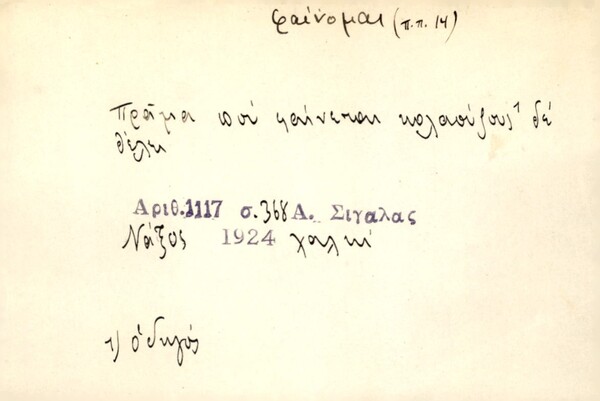 φαίνομαι (π.π. 14)
Πρᾶμα ποὺ φαίνεται κολαούζους¹ δὲ
θέλει
Αριθ. 1117 σ. 368 Α. Σιγαλας
Νάξος 1924 χαλκί
1) ὁδηγός